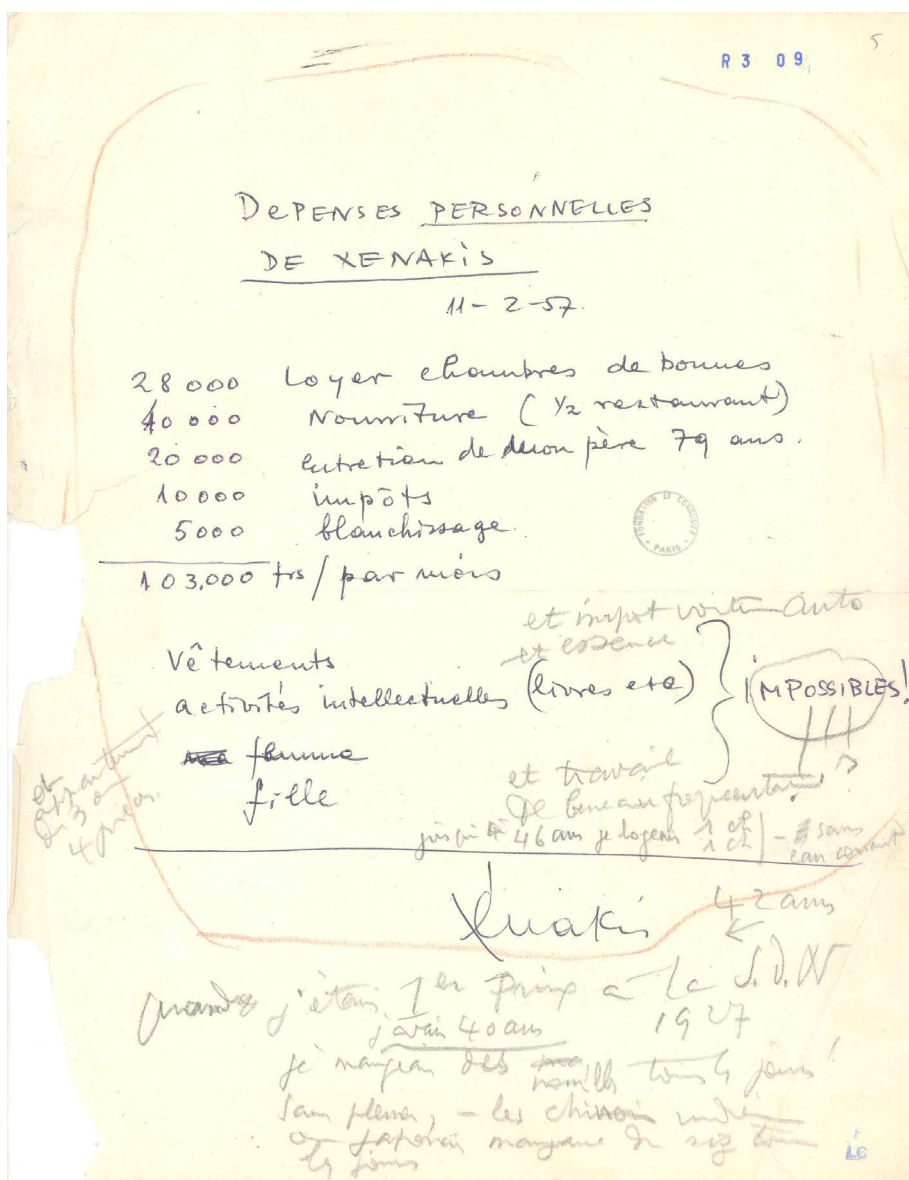 5
R 3 09
DePENSES PERSONNELLES
DE XENAKiS
11-2-57.
28 000 Loyer chambres de bonnes
40 000 Nourriture (½ restaurant)
20 000 Entretien de mon père 79 ans.
10 000 impôts
5000 blanchissage.
103.000 frs / par mois
FONDATION LE CORBUSIER
PARIS
et impot voiture auto
et essence
Vêtements
activités intellectuelles (livres etc) } iMPOSSIBLES!
femme
fille
et appartement
de 3 ou
4 pièces.
et travail
de bureau
jusqu'à 46 ans je logeais 1 ch
1 ch - sans
eau courante
Xenakis
42 ans
quand j'étais 1er Prix à la S.D.N
j'avais 40 ans 1927
je mangeais des nouilles tous les jours!
sans pleurer, - les chinois
ou japonais mangent du riz tous
les jours
LC